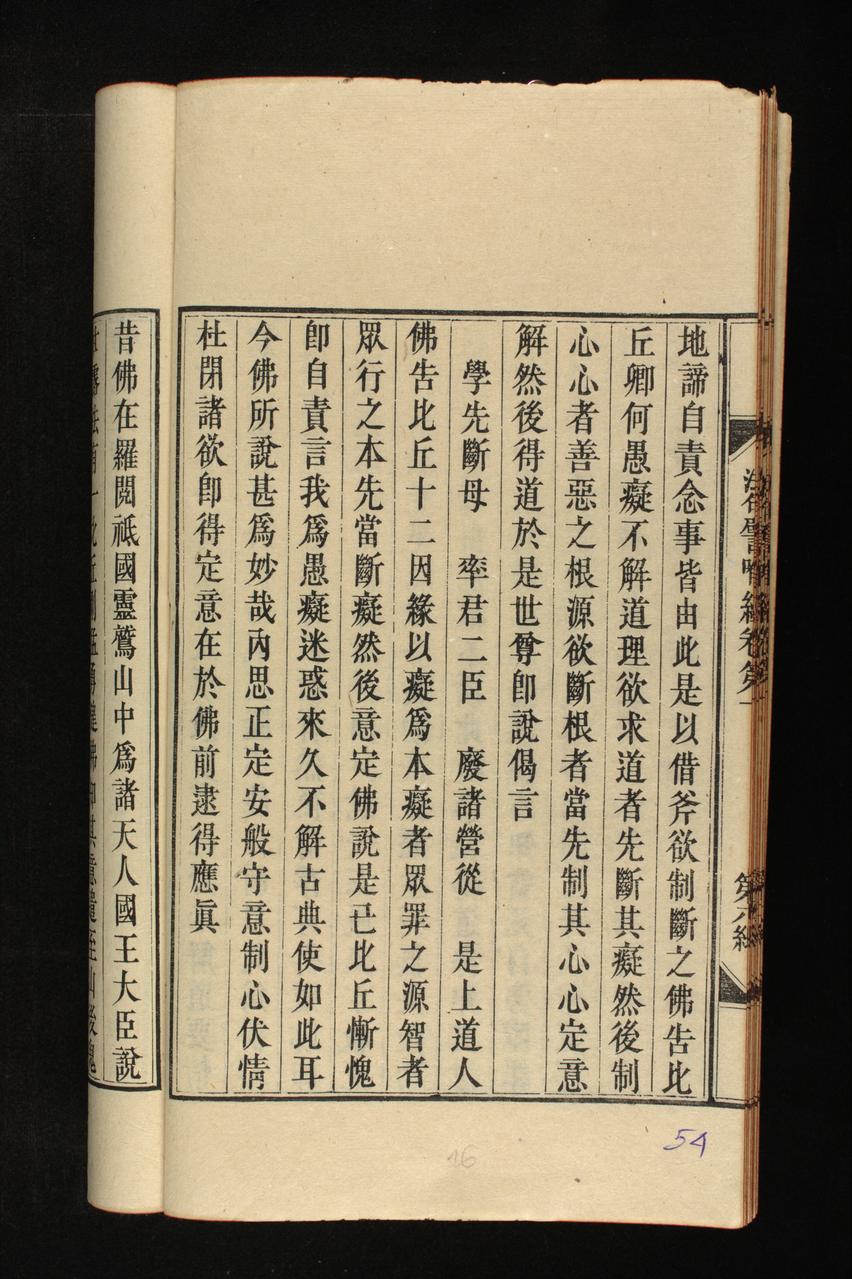 法句譬喻經卷第一
第六紙
地諦自責念事皆由此是以借斧欲制斷之佛告比
丘卿何愚癡不解道理欲求道者先斷其癡然後制
心心者善惡之根源欲斷根者當先制其心心定意
解然後得道於是世尊卽說偈言
學先斷母 率君二臣 廢諸營從 是上道人
佛告比丘十二因緣以癡爲本癡者眾罪之源智者
眾行之本先當斷癡然後意定佛說是已比丘慚愧
卽自責言我爲愚癡迷惑來久不解古典使如此耳
今佛所說甚爲妙哉內思正定安般守意制心伏情
杜閉諸欲卽得定意在於佛前逮得應眞
昔佛在羅閱祇國靈鷲山中爲諸天人國王大臣說
54
16